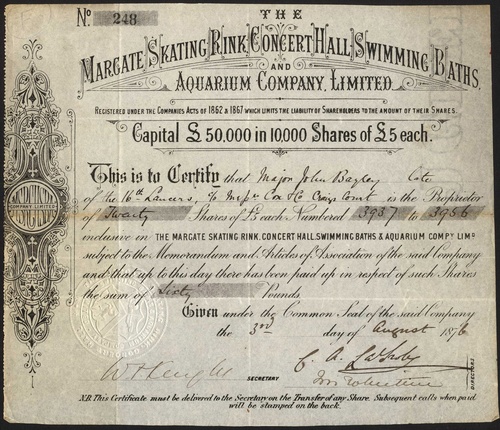 No 248
THE
MARGATE SKATING RINK, CONCERT HALL, SWIMMING BATHS,
AND
AQUARIUM COMPANY, LIMITED.
REGISTERED UNDER THE COMPANIES ACTS OF 1862 & 1867 WHICH LIMITS THE LIABILITY OF SHAREHOLDERS TO THE AMOUNT OF THEIR SHARES.
Capital £50,000 in 10,000 Shares of £5 each.
This is to Certify that Major John Late
of the 16th Lancers, Cox & Co Craigs Court is the Proprietor
of Twenty Shares of £5 each Numbered 3937 to 3956
inclusive in THE MARGATE SKATING RINK, CONCERT HALL, SWIMMING BATHS & AQUARIUM COMPY LIMD
subject to the Memorandum and Articles of Association of the said Company
and that up to this day there has been paid up in respect of such Shares
the sum of Sixty Pounds.
Given under the Common Seal of the said Company
the 3rd day of August 1876
SECRETARY
DIRECTORS
N.B. This Certificate must be delivered to the Secretary on the Transfer of any Share. Subsequent calls when paid
will be stamped on the back.
COMPANY, LIMITED.